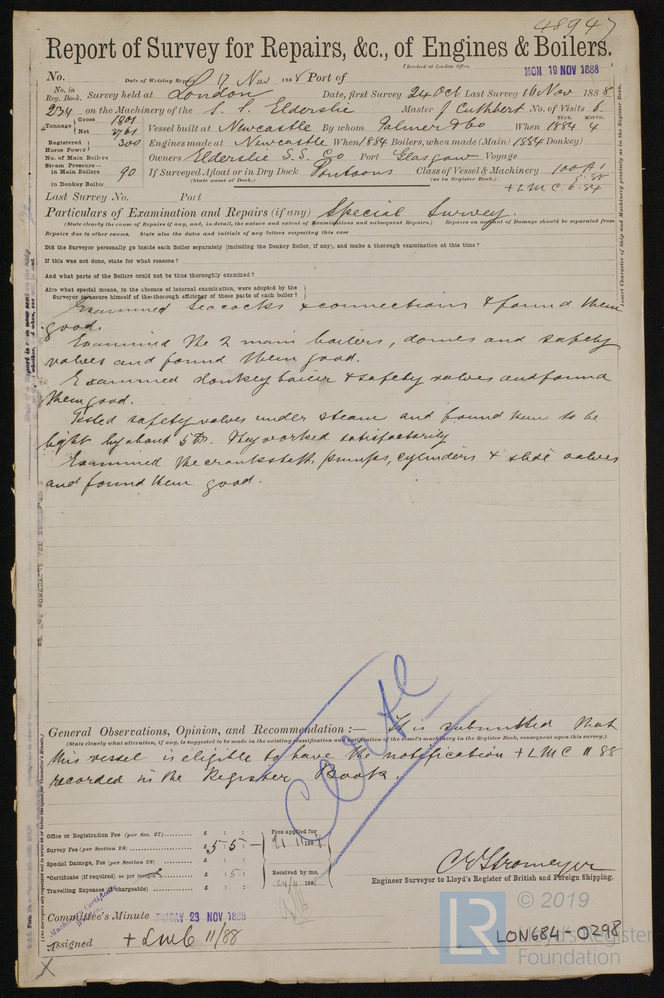 48947
Report of Survey for Repairs, &c., of Engines & Boilers.
(Received at London Office,
MON 19 NOV 1888
No.
Date of Writing Report 17 Nov 1888 Port of
No. in Reg. Book.
Survey held at London Date, first Survey 24 Oct Last Survey 16 Nov 1888
234 on the Machinery of the S. S. Elderslie Master J Cuthbert No. of Visits 6.
Tonnage Gross 1801
Net
Vessel built at Newcastle By whom Palmer & Co When 1884 4
YEAR. MONTH.
Registered Horse Power 300 Engines made at Newcastle When 1884 Boilers, when made (Main) 1884 Donkey)
No. of Main Boilers
Owners Elderslie S.S. Co Port Glasgow Voyage
Steam Pressure— in Main Boilers 90 If Surveyed Afloat or in Dry Dock Pontoons Class of Vessel & Machinery 100 A1
(State name of Dock.) (as in Register Book.)
in Donkey Boiler
+ L M C. 6.84
Last Survey No. Port
Particulars of Examination and Repairs (if any) Special Survey.
(State clearly the cause of Repairs if any, and, in detail, the nature and extent of Examinations and subsequent Repairs.) Repairs on account of Damage should be separated from
Repairs due to other causes. State also the dates and initials of any letters respecting this case
Did the Surveyor personally go inside each Boiler separately (including the Donkey Boiler, if any), and make a thorough examination at this time?
If this was not done, state for what reasons?
And what parts of the Boilers could not be thus thoroughly examined?
Also what special means, in the absence of internal examination, were adopted by the
Surveyor to assure himself of the thorough efficiency of those parts of each boiler?
Examined seacocks & connections & found them
good.
Examined the 2 main boilers, domes and safety
valves and found them good.
Examined donkey boiler & safety valves and found
them good.
Tested safety valves under steam and found them to be
light by about 5 lbs. They worked satisfactorily
Examined the crankshaft, pumps, cylinders & slide valves
and found them good.
General Observations, Opinion, and Recommendation:— It is submitted that
(State clearly what alteration, if any, is suggested to be made in the existing classification and notification of the vessel's machinery in the Register Book, consequent upon this survey.)
this vessel is eligible to have the notification + LMC 11 88
recorded in the Register Book.
Office or Registration Fee (per Sec. 27) £ : :
Survey Fee (per Section 28) £ 5 : 5 : —
Special Damage, Fee (per Section 28) £ : :
*Certificate (if required) as per margin £ : 5 :
Travelling Expenses (if chargeable) £ : :
Fees applied for
21 11 1888
Received by me,
C E Stromeyer
Engineer Surveyor to Lloyd's Register of British and Foreign Shipping.
Committee's Minute FRIDAY 23 NOV 1888
Assigned + LMC 11/88
Insert Character of Ship and Machinery precisely as in the Register Book.
© 2019
LR
Lloyd's Register
Foundation
LON684-0298